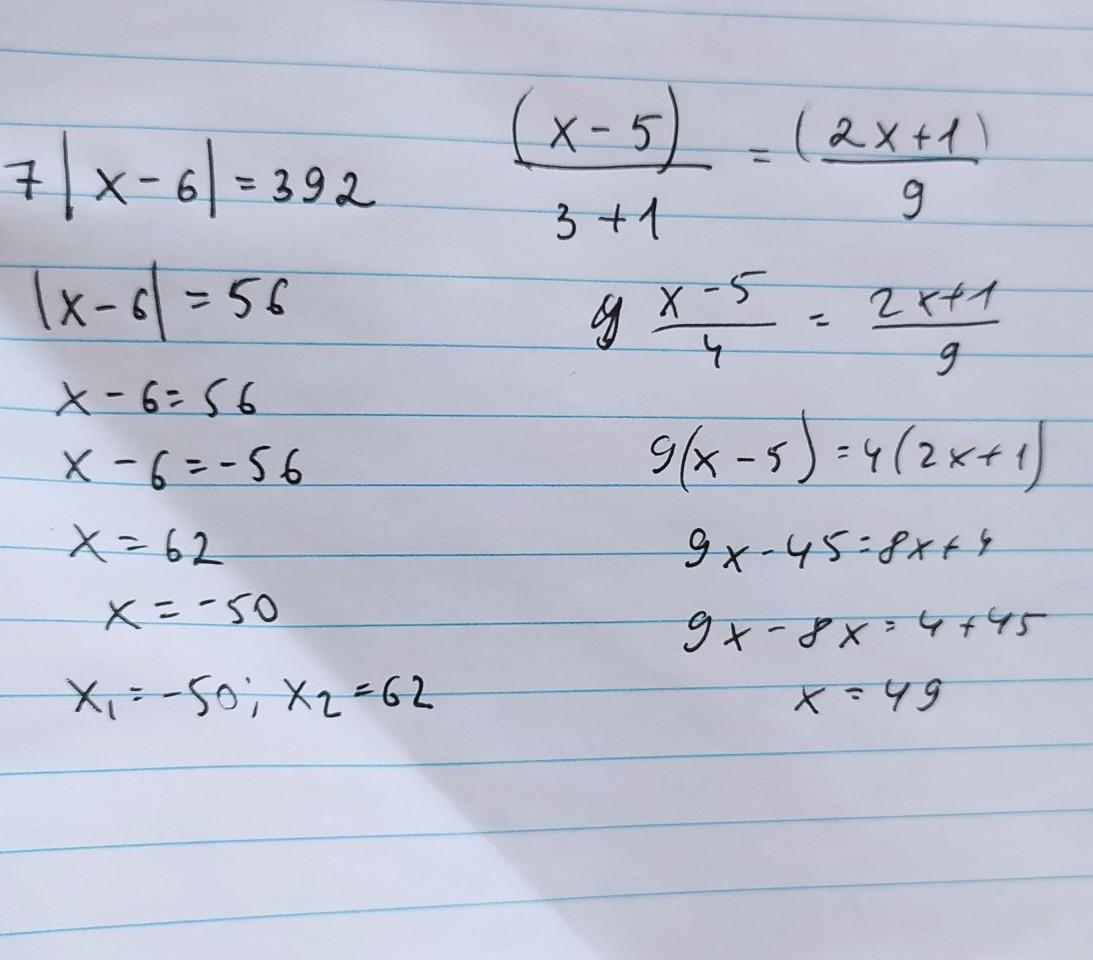 7|x-6|=392
|x-6|=56
x-6=56
x-6=-56
x=62
x=-50
x₁=-50; x₂=62
(x-5)/3+1 = (2x+1)/9
9 x-5/4 = 2x+1/9
9(x-5)=4(2x+1)
9x-45=8x+4
9x-8x=4+45
x=49